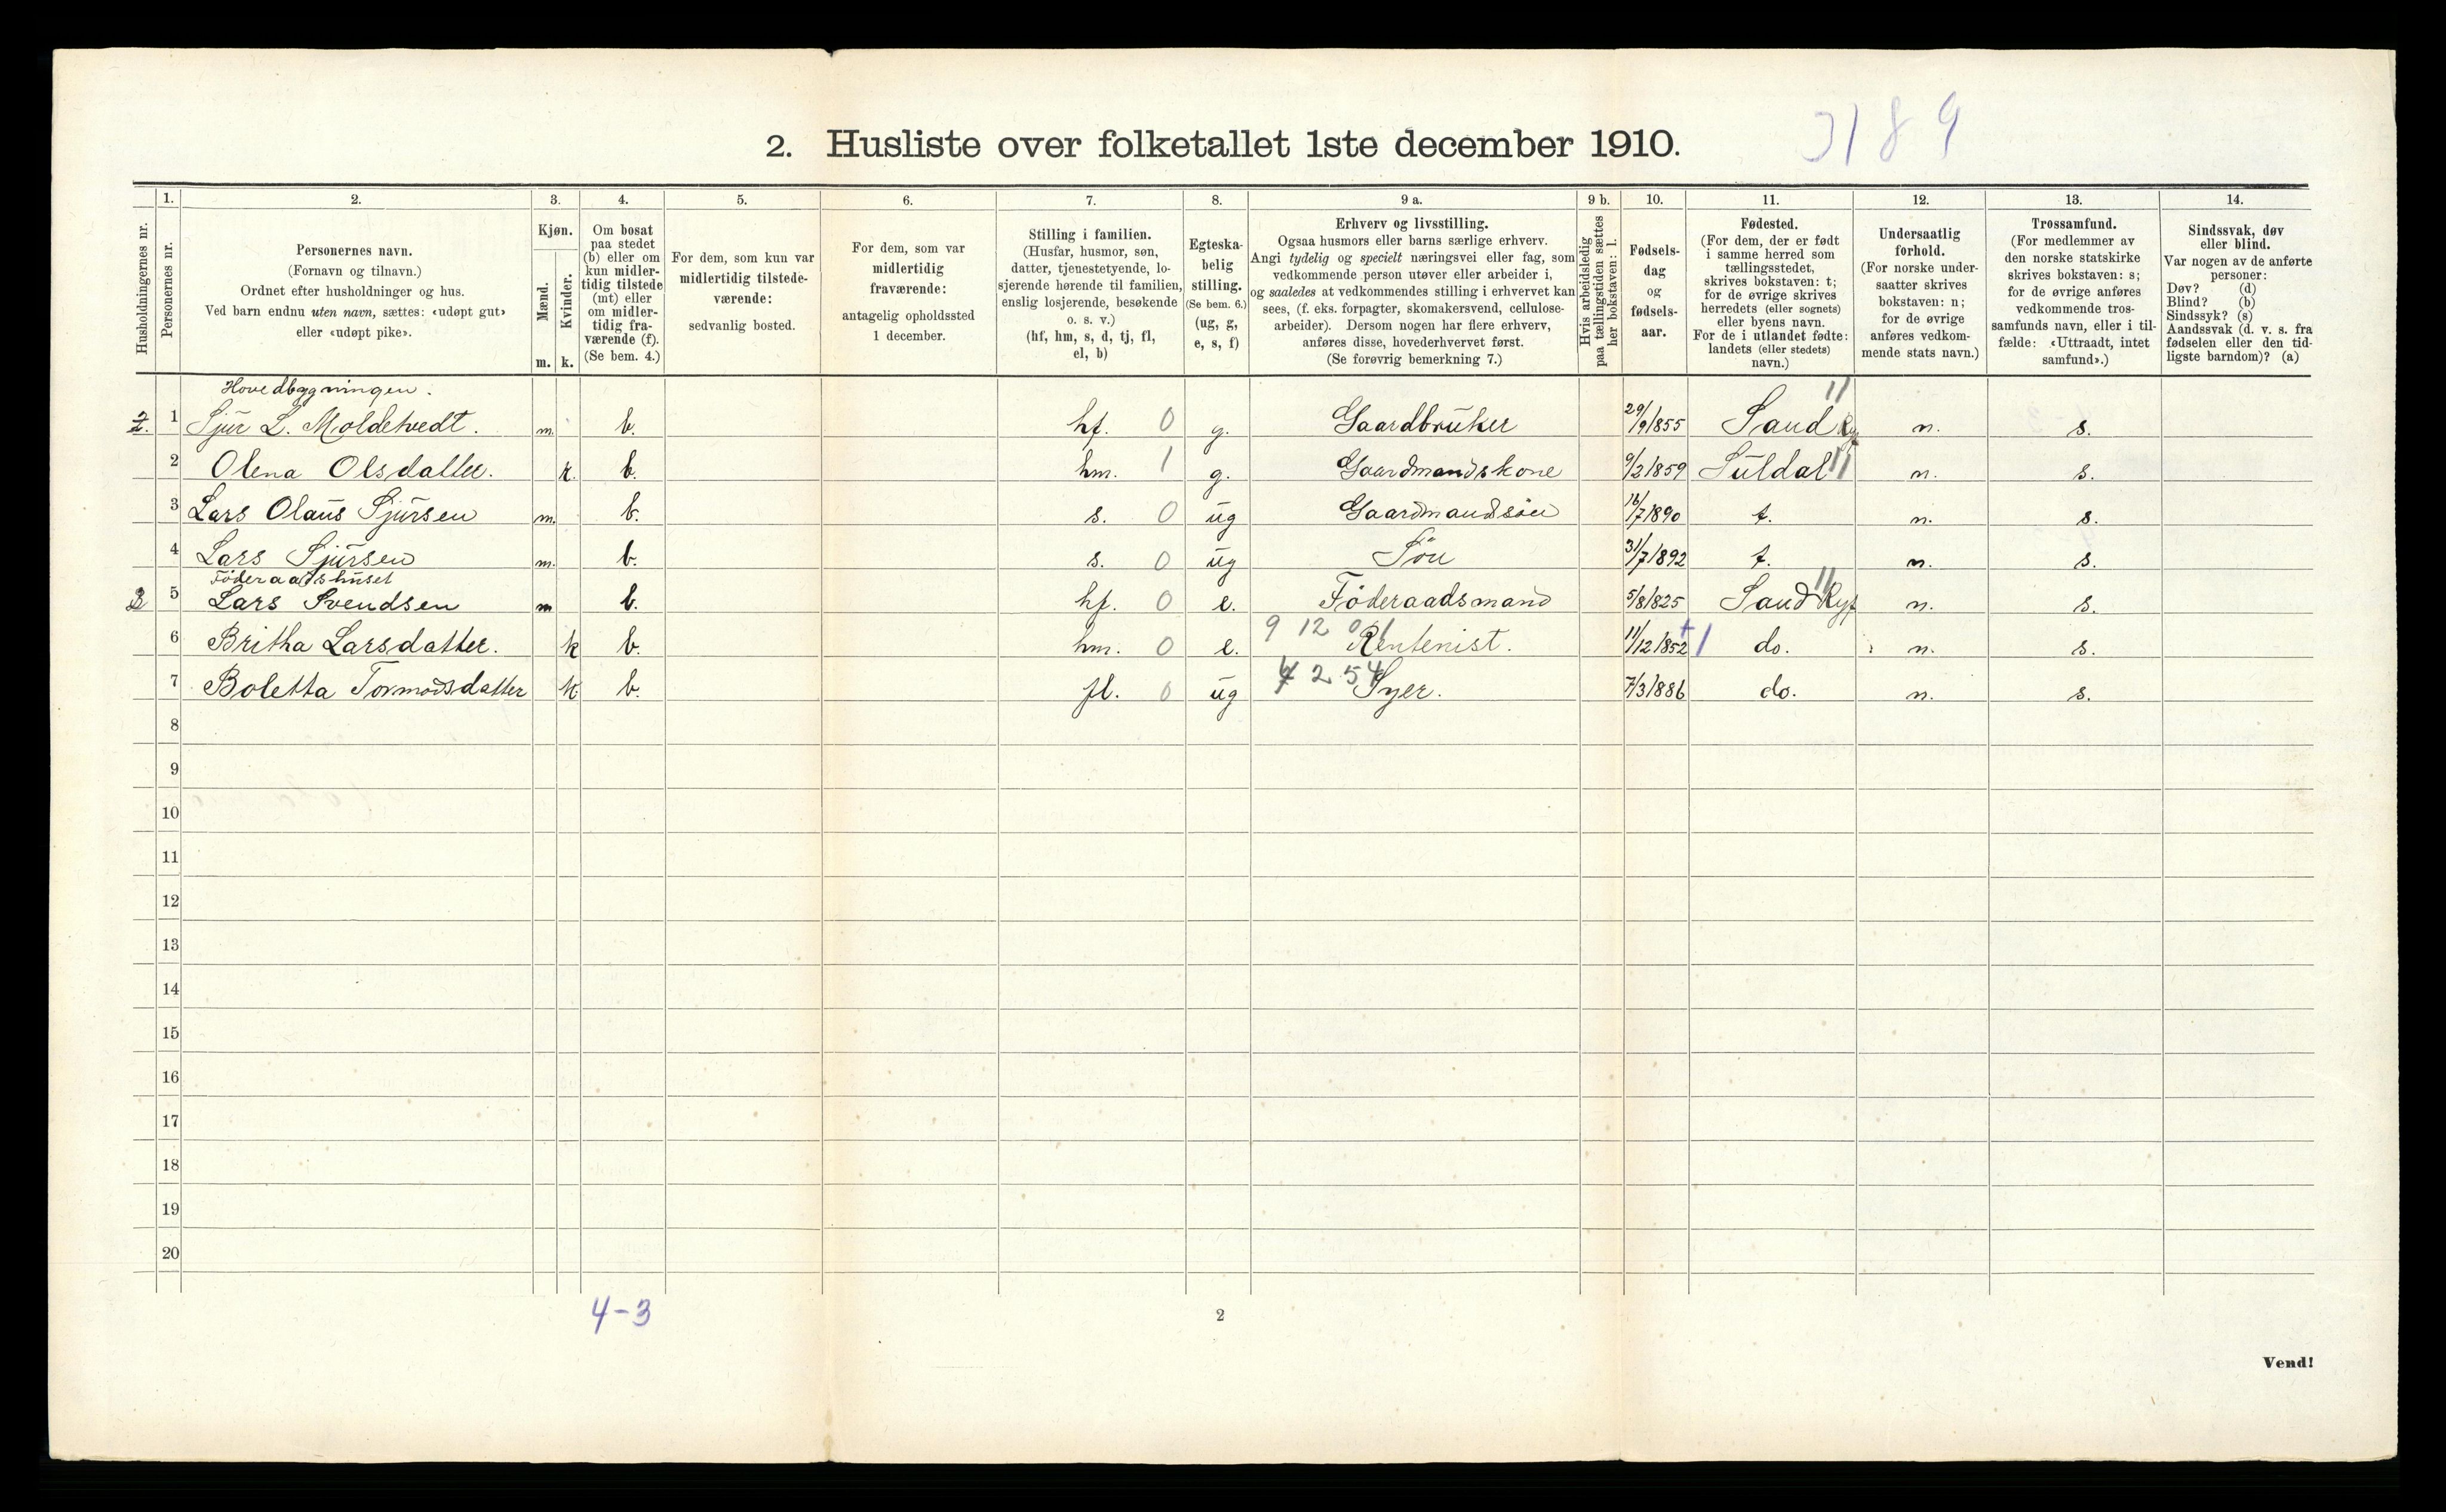 3189
2. Husliste over folketallet 1ste december 1910.
Husholdningernes nr.
1. Personernes nr.
2. Personernes navn.
(Fornavn og tilnavn.)
Ordnet efter husholdninger og hus.
Ved barn endnu uten navn, sættes: «udøpt gut»
eller «udøpt pike».
3. Kjøn.
Mænd. m.
Kvinder. k.
4. Om bosat
paa stedet
(b) eller om
kun midler-
tidig tilstede
(mt) eller
om midler-
tidig fra-
værende (f).
(Se bem. 4.)
5. For dem, som kun var
midlertidig tilstede-
værende:
sedvanlig bosted.
6. For dem, som var
midlertidig
fraværende:
antagelig opholdssted
1 december.
7. Stilling i familien.
(Husfar, husmor, søn,
datter, tjenestetyende, lo-
sjerende hørende til familien,
enslig losjerende, besøkende
o. s. v.)
(hf, hm, s, d, tj, fl,
el, b)
8. Egteska-
belig
stilling.
(Se bem. 6.)
(ug, g,
e, s, f)
9 a. Erhverv og livsstilling.
Ogsaa husmors eller barns særlige erhverv.
Angi tydelig og specielt næringsvei eller fag, som
vedkommende person utøver eller arbeider i,
og saaledes at vedkommendes stilling i erhvervet kan
sees, (f. eks. forpagter, skomakersvend, cellulose-
arbeider). Dersom nogen har flere erhverv,
anføres disse, hovederhvervet først.
(Se forøvrig bemerkning 7.)
9 b. Hvis arbeidsledig
paa tællingstiden sættes
her bokstaven: l.
10. Fødsels-
dag
og
fødsels-
aar.
11. Fødested.
(For dem, der er født
i samme herred som
tællingsstedet,
skrives bokstaven: t;
for de øvrige skrives
herredets (eller sognets)
eller byens navn.
For de i utlandet fødte:
landets (eller stedets)
navn.)
12. Undersaatlig
forhold.
(For norske under-
saatter skrives
bokstaven: n;
for de øvrige
anføres vedkom-
mende stats navn.)
13. Trossamfund.
(For medlemmer av
den norske statskirke
skrives bokstaven: s;
for de øvrige anføres
vedkommende tros-
samfunds navn, eller i til-
fælde: «Uttraadt, intet
samfund».)
14. Sindssvak, døv
eller blind.
Var nogen av de anførte
personer:
Døv? (d)
Blind? (b)
Sindssyk? (s)
Aandssvak (d. v. s. fra
fødselen eller den tid-
ligste barndom)? (a)
Hovedbygningen.
2. 1 Sjur L. Moldetvedt. m. b. hf. 0 g. Gaardbruker 29/9 1855 Sand Ryf 11 n. s.
2 Olena Olsdatter. k. b. hm. 1 g. Gaardmandskone 9/2 1859 Suldal 11 n. s.
3 Lars Olaus Sjursen m. b. s. 0 ug Gaardmandssøn 16/7 1890 t. n. s.
4 Lars Sjursen m. b. s. 0 ug Søn 31/7 1892 t. n. s.
Føderaadshuset
5 Lars Svendsen m b. hf. 0 e. Føderaadsmand 5/8 1825 Sand Ryf 11 n. s.
6 Britha Larsdatter. k b. hm. 0 e. 9 12 01 Rentenist. 11/12 1852 do. n. s.
7 Boletta Tormodsdatter k b. fl. 0 ug 4 2 54 Syer. 7/3 1886 do. n. s.
8
9
10
11
12
13
14
15
16
17
18
19
20
4-3
2
Vend!